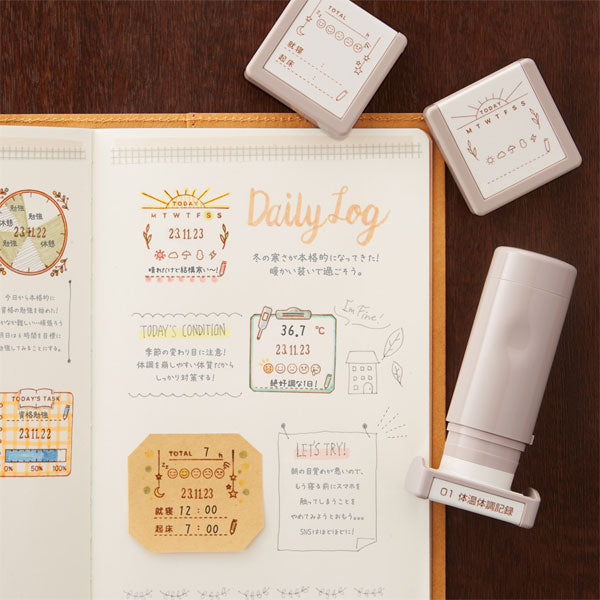 TOTAL h
就寝 :
起床 :
TODAY
M T W T F S S
勉強
勉強
休憩
23.11.22
勉強
休憩
今日から本格的に
資格の勉強を始めた!
TODAY'S TASK
資格勉強
23.11.22
0% 50% 100%
TODAY
M T W T F S S
23.11.23
晴れだけど結構寒い〜!
Daily Log
冬の寒さが本格的になってきた!
暖かい装いで過ごそう。
TODAY'S CONDITION
季節の変わり目に注意!
体調を崩しやすい体質だから
しっかり対策する!
36.7 ℃
23.11.23
絶好調な1日!
I'm Fine!
TOTAL 7 h
23.11.23
就寝 12:00
起床 7:00
LET'S TRY!
朝の目覚めが悪いので、
もう寝る前にスマホを
触ってしまうことを
やめてみようとおもう…。
SNSはほどほどに!
01 体温体調記録